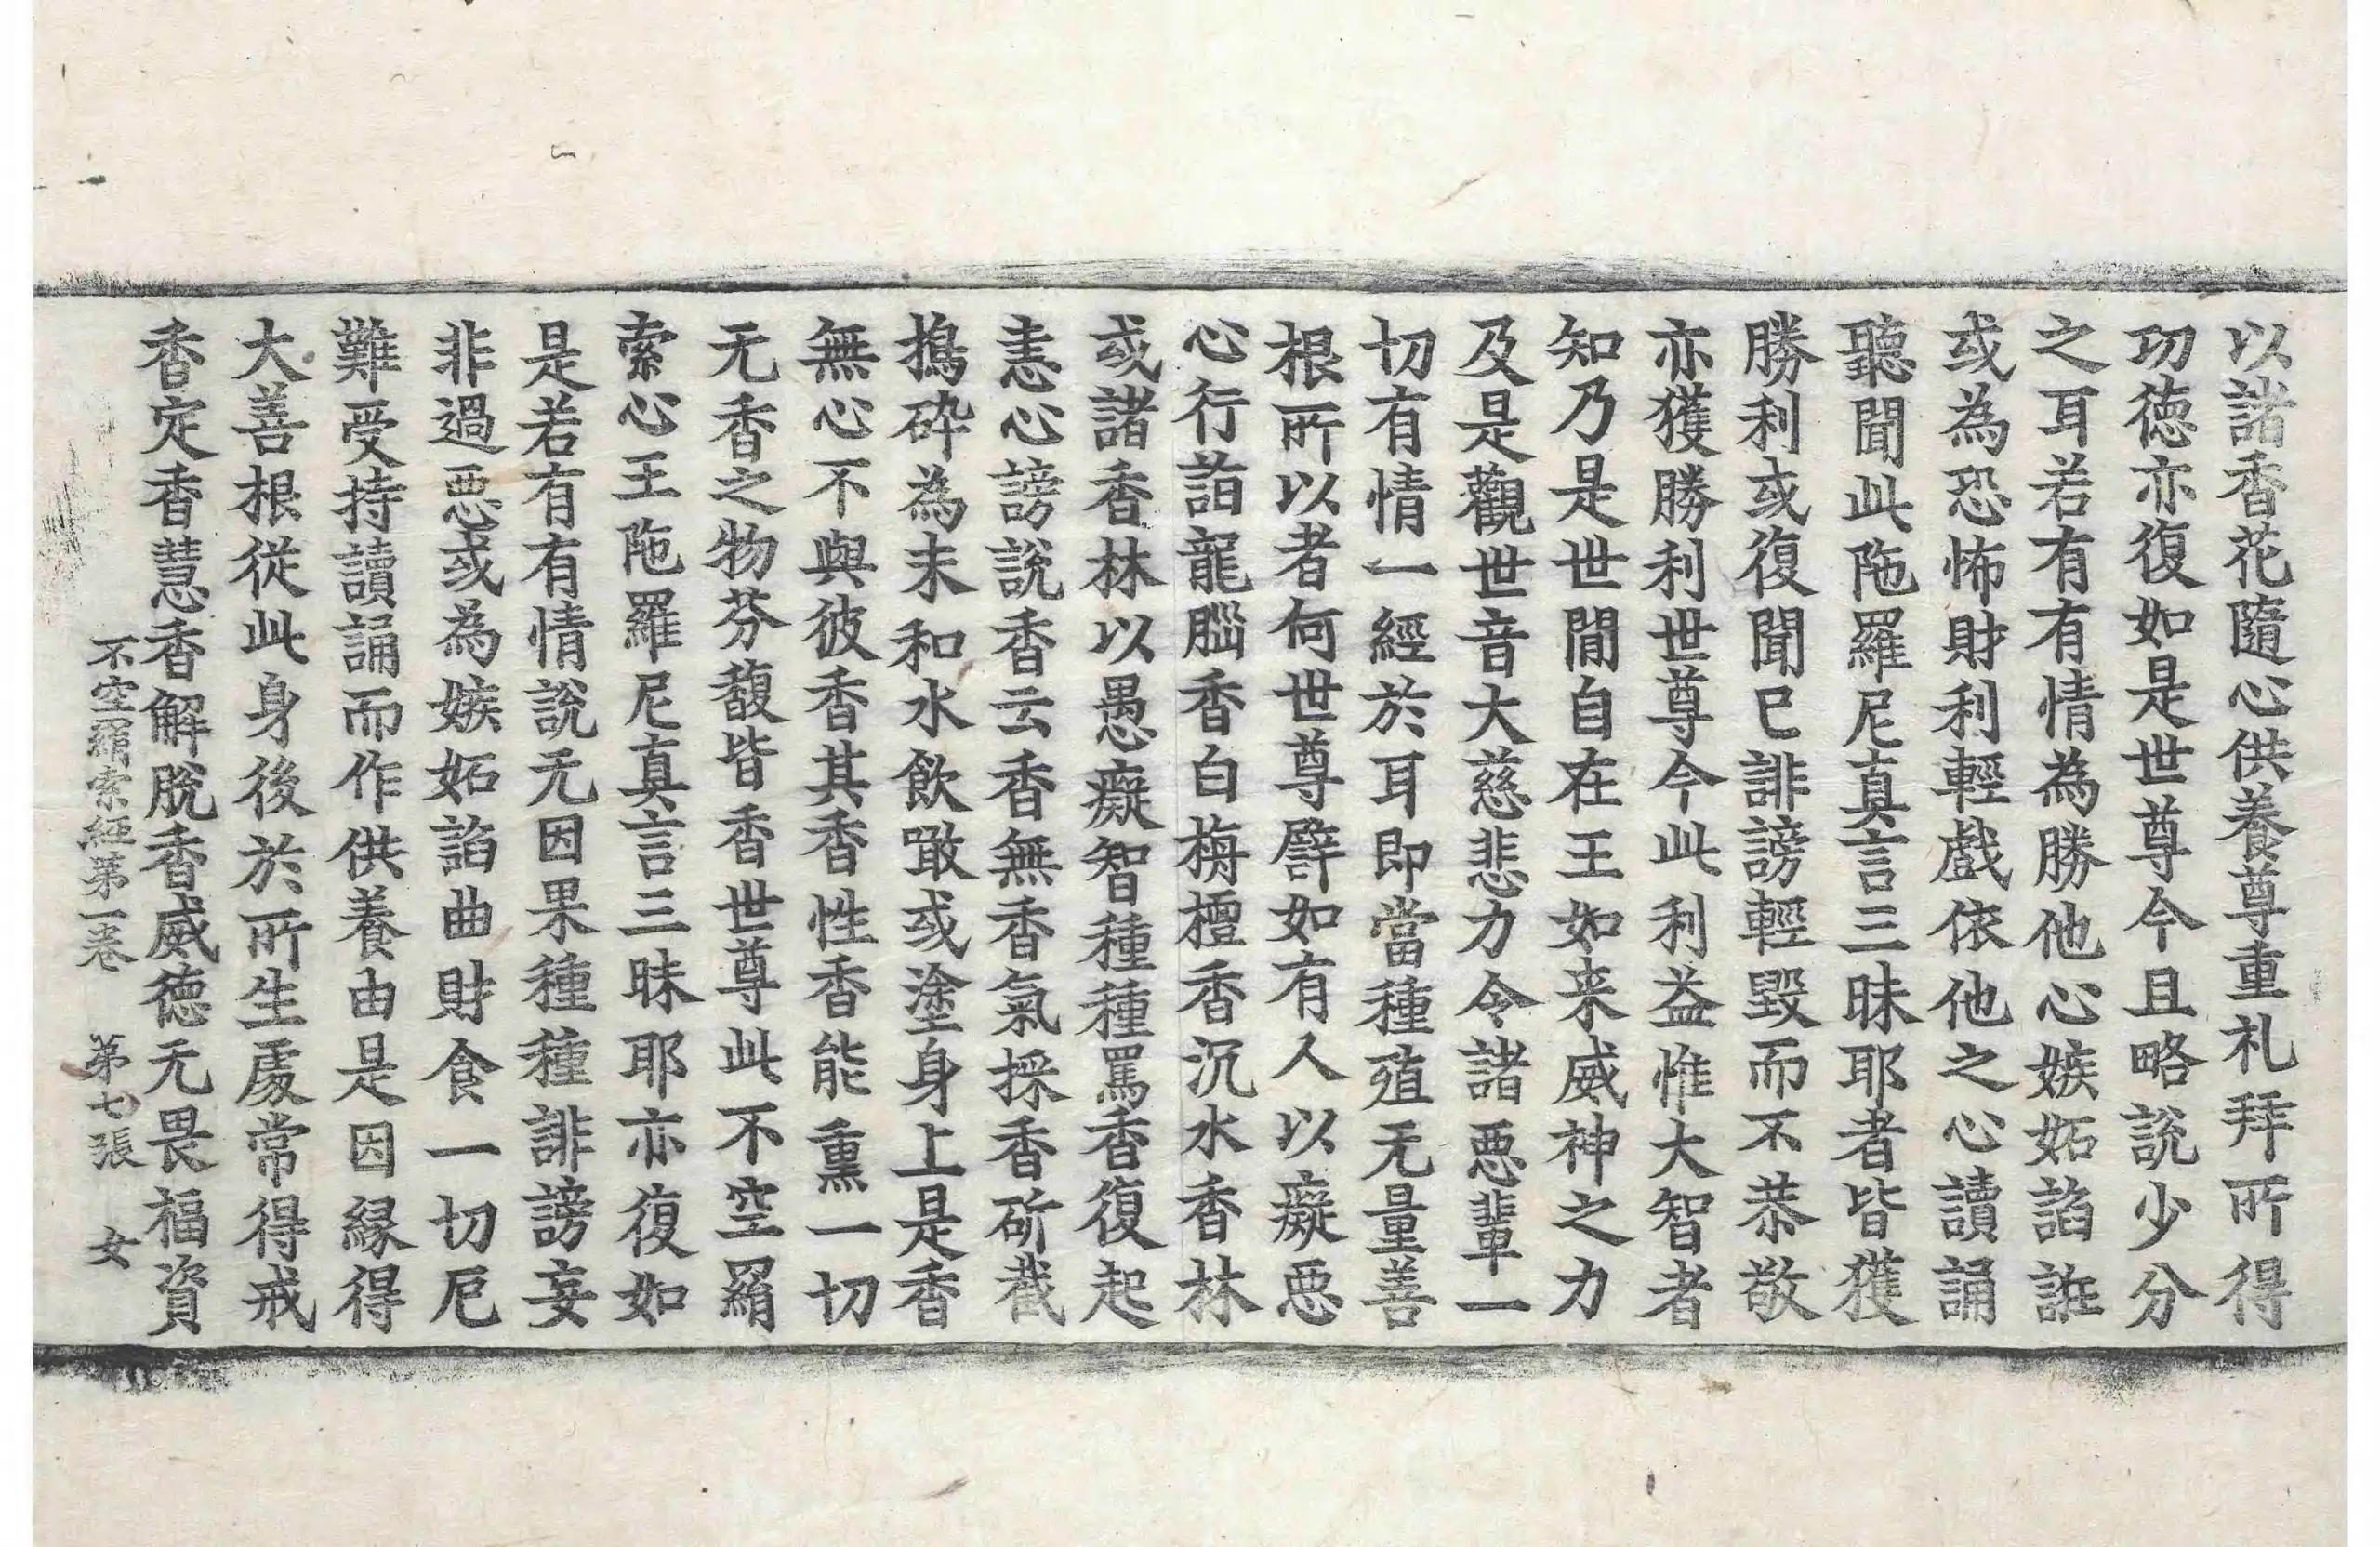 以諸香花隨心供養尊重礼拜所得
功德亦復如是世尊今且略說少分
之耳若有有情為勝他心嫉妬諂誑
或為恐怖財利輕戲依他之心讀誦
聽聞此陁羅尼真言三昧耶者皆獲
勝利或復聞已誹謗輕毀而不恭敬
亦獲勝利世尊今此利益惟大智者
知乃是世間自在王如来威神之力
及是觀世音大慈悲力令諸惡輩一
切有情一經於耳即當種殖无量善
根所以者何世尊譬如有人以癡惡
心行詣龍腦香白栴檀香沉水香林
或諸香林以愚癡智種種罵香復起
恚心謗說香云香無香氣採香斫截
擣碎為末和水飲噉或塗身上是香
無心不與彼香其香性香能熏一切
无香之物芬馥皆香世尊此不空羂
索心王陁羅尼真言三昧耶亦復如
是若有有情說无因果種種誹謗妄
非過惡或為嫉妬諂曲財食一切厄
難受持讀誦而作供養由是因緣得
大善根從此身後於所生處常得戒
香定香慧香解脫香威德无畏福資
不空羂索經第一卷 第七張 女